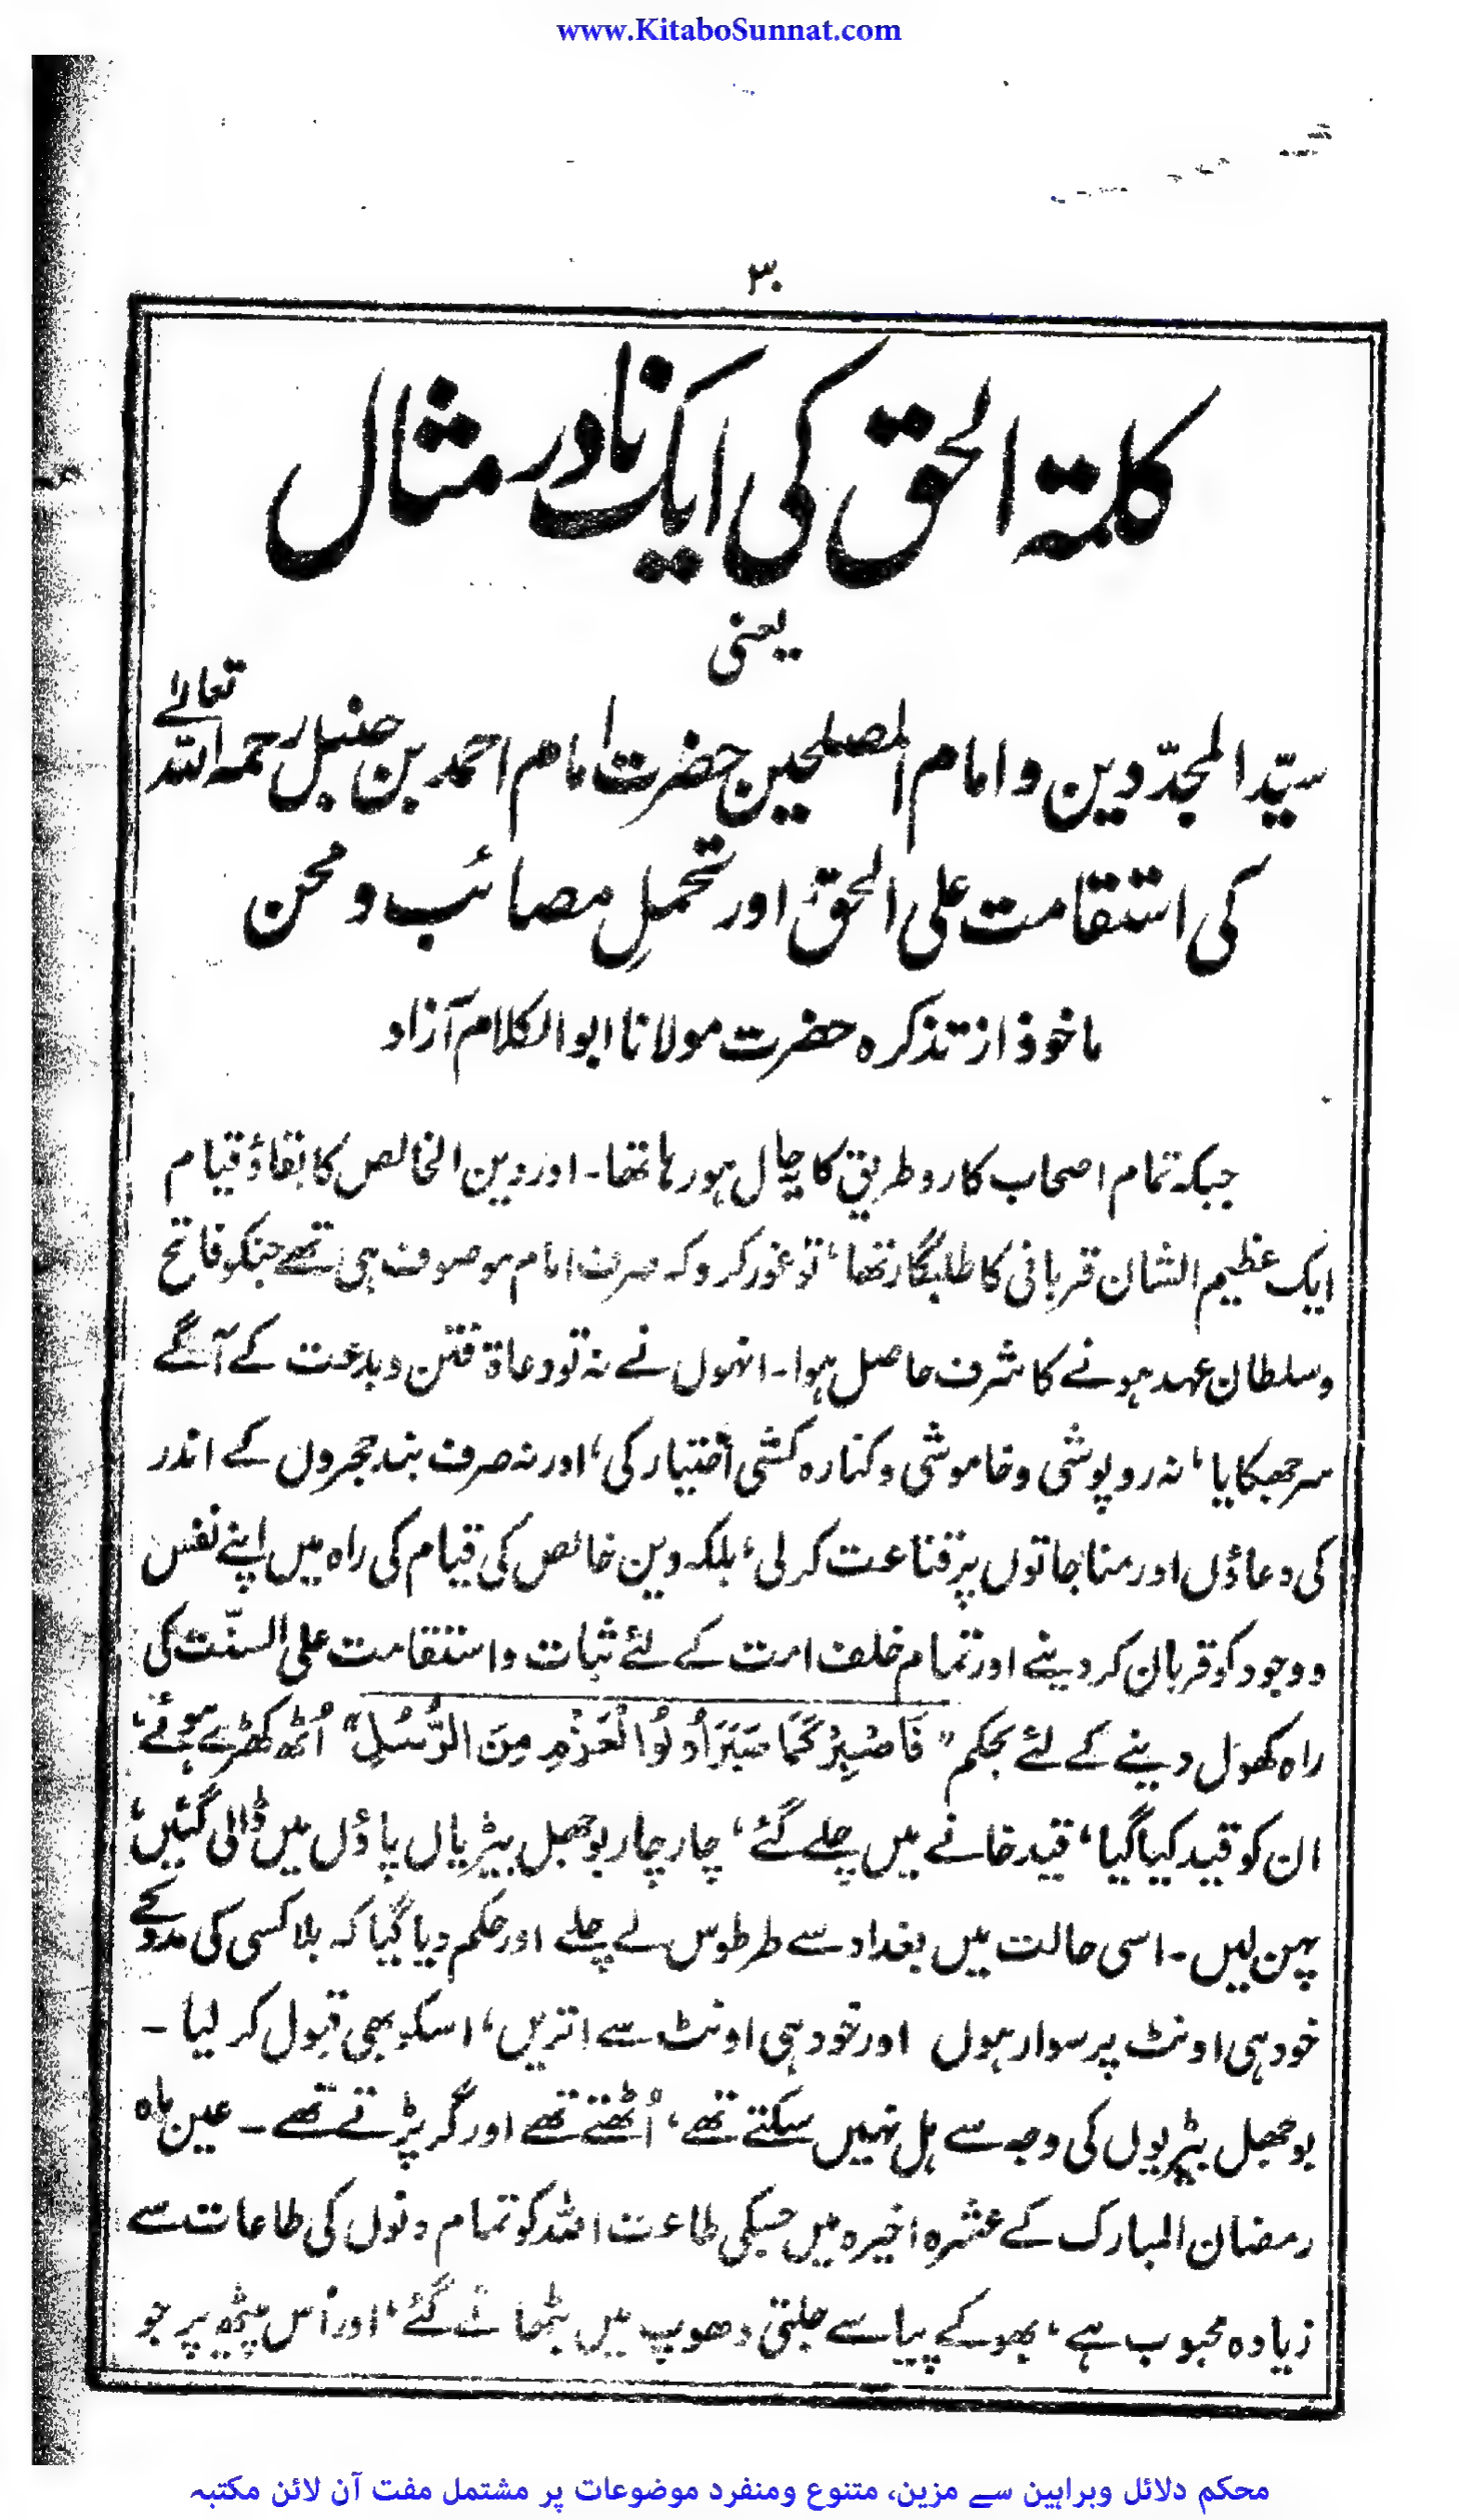 www.KitaboSunnat.com
۳۰
کلمۃ الحق کی ایک نادر مثال
یعنی
سیّد المجدّدین و امام المصلحین حضرت امام احمد بن حنبل رحمہ اللہ تعالےٰ
کی استقامت علی الحق اور تحمل مصائب و محن
ماخوذ از تذکرہ حضرت مولانا ابوالکلام آزاد
جبکہ تمام اصحاب کار و طریق کا یہ حال ہو رہا تھا۔ اور دین الخالص کا بقاؤ قیام
ایک عظیم الشان قربانی کا طلبگار تھا، تو غور کرو کہ صرف امام موصوف ہی تھے جنکو فاتح
و سلطان عہد ہونے کا شرف حاصل ہوا۔ انہوں نے نہ تو دعاۃ فتن و بدعت کے آگے
سر جھکایا، نہ روپوشی و خاموشی و کنارہ کشی اختیار کی، اور نہ صرف بند حجروں کے اندر
کی دعاؤں اور مناجاتوں پر قناعت کر لی، بلکہ دین خالص کی قیام کی راہ میں اپنے نفس
و وجود کو قربان کر دینے اور تمام خلف امت کے لئے ثبات و استقامت علی السنّت کی
راہ کھول دینے کے لئے بحکم ”فَاصْبِرْ كَمَا صَبَرَ اُولُوا الْعَزْمِ مِنَ الرُّسُلِ“ اُٹھ کھڑے ہوئے،
ان کو قید کیا گیا، قید خانے میں چلے گئے، چار چار بوجھل بیڑیاں پاؤں میں ڈالی گئیں،
پہن لیں۔ اسی حالت میں بغداد سے طرطوس لے چلے اور حکم دیا گیا کہ بلا کسی کی مدد کے
خود ہی اونٹ پر سوار ہوں اور خود ہی اونٹ سے اتریں، اسکو بھی قبول کر لیا ۔
بوجھل بیڑیوں کی وجہ سے ہل نہیں سکتے تھے، اُٹھتے تھے اور گر پڑتے تھے ۔ عین ماہ
رمضان المبارک کے عشرہ اخیرہ میں جسکی طاعت اللہ کو تمام دنوں کی طاعات سے
زیادہ محبوب ہے، بھوکے پیاسے جلتی دھوپ میں بٹھائے گئے، اور اُس پیٹھ پر جو
محکم دلائل وبراہین سے مزین، متنوع ومنفرد موضوعات پر مشتمل مفت آن لائن مکتبہ